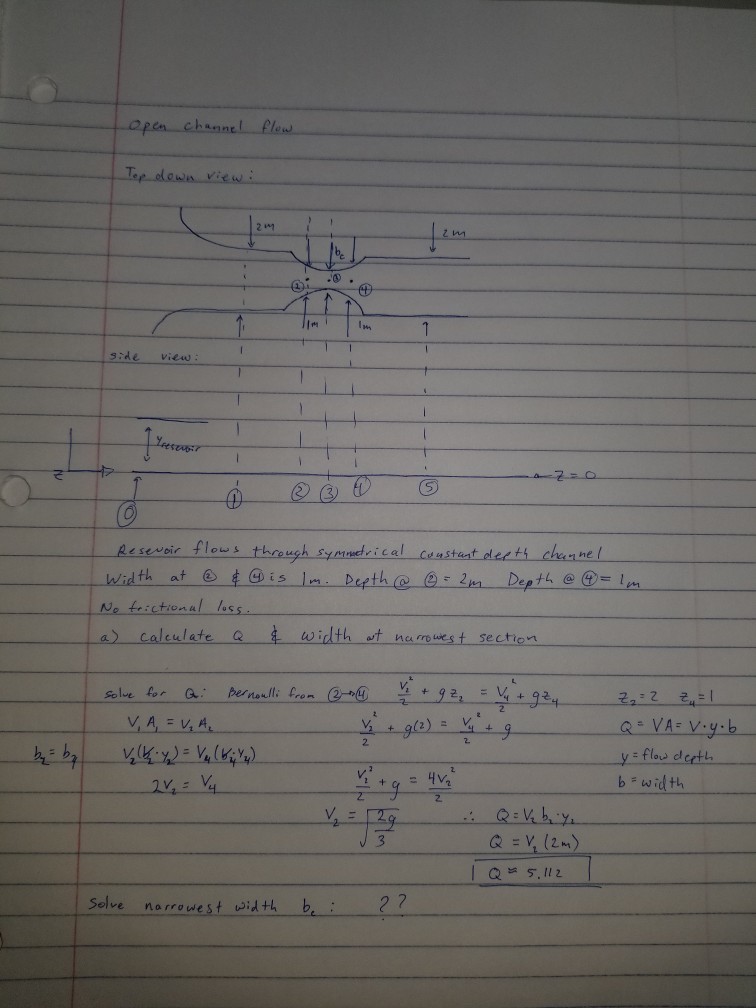 Open channel flow
Top down view:
2m
b_c
2m
② ③ ④
1m 1m
side view:
y_reservoir
z
z=0
⓪ ① ② ③ ④ ⑤
Resevoir flows through symmetrical constant depth channel
Width at ② & ④ is 1m. Depth @ ② = 2m Depth @ ④ = 1m
No frictional loss.
a) calculate Q & width at narrowest section
solve for Q: Bernoulli from ②→④ V₂²/2 + gz₂ = V₄²/2 + gz₄ z₂=2 z₄=1
V₁A₁ = V₂A₂ V₂²/2 + g(2) = V₄²/2 + g Q = VA = V·y·b
b₂ = b₄ V₂(b₂·y₂) = V₄(b₄·y₄) y = flow depth
2V₂ = V₄ V₂²/2 + g = 4V₂²/2 b = width
V₂ = √(2g/3) ∴ Q = V₂ b₂·y₂
Q = V₂(2m)
Q ≈ 5.112
Solve narrowest width b_c : ??